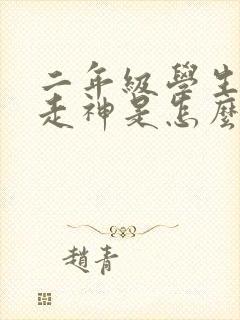 二年級學生
走神是怎麼
趙青